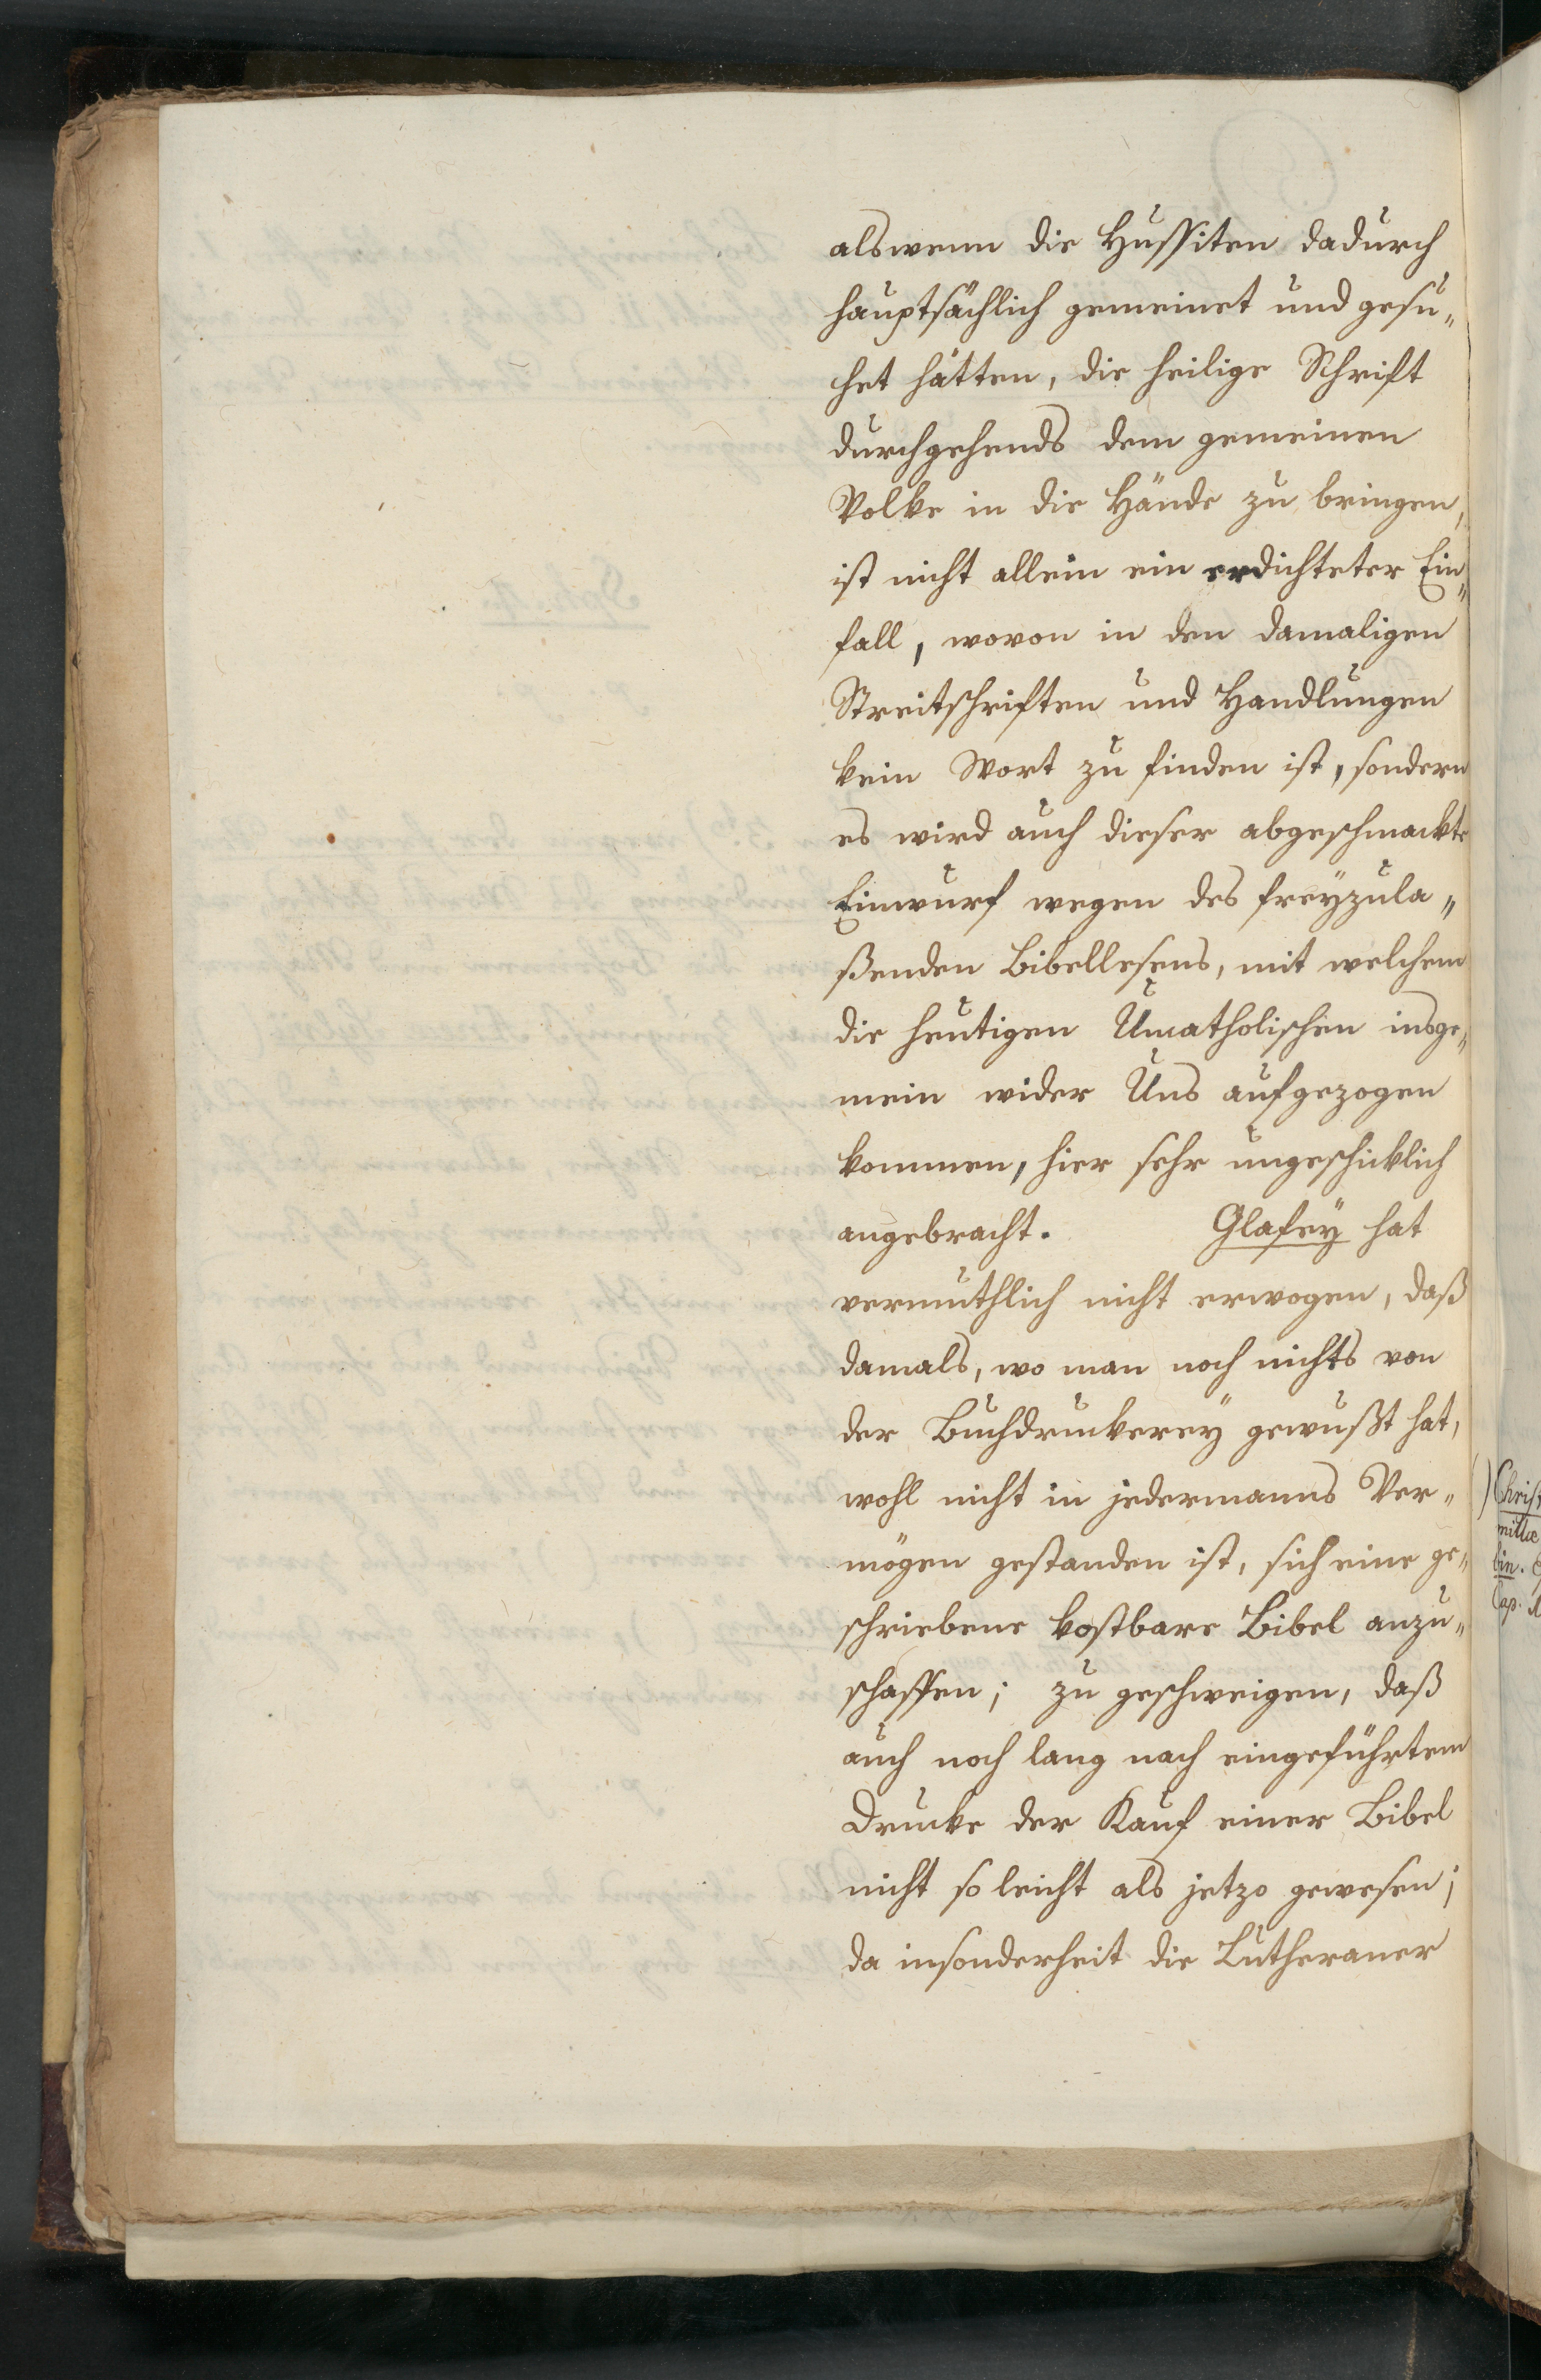 alswenn die Hussiten dadurch
hauptsächlich gemeinet und gesu„
het hätten, die heilige Schrift
durchgehends dem gemeinen
Volke in die Hände zu bringen,
ist nicht allein ein erdichteter Ein„
fall, wovon in den damaligen
Streitschriften und Handlungen
kein Wort zu finden ist, sondern
es wird auch dieser abgeschmackte
Einwurf wegen des freÿzula„
ßenden Bibellesens, mit welchem
die heutigen Uncatholischen insge„
mein wider Uns aufgezogen
kommen, hier sehr ungeschicklich
angebracht. Glafeÿ hat
vermuthlich nicht erwogen, daß
damals, wo man noch nichts von
der Buchdruckereÿ gewußt hat,
wohl nicht in jedermanns Ver„
mögen gestanden ist, sich eine ge„
schriebene kostbare Bibel anzu„
schaffen; zu geschweigen, daß
auch noch lang nach eingeführtem
Drucke der Kauf einer Bibel
nicht so leicht als jetzo gewesen;
da insonderheit die Lutheraner